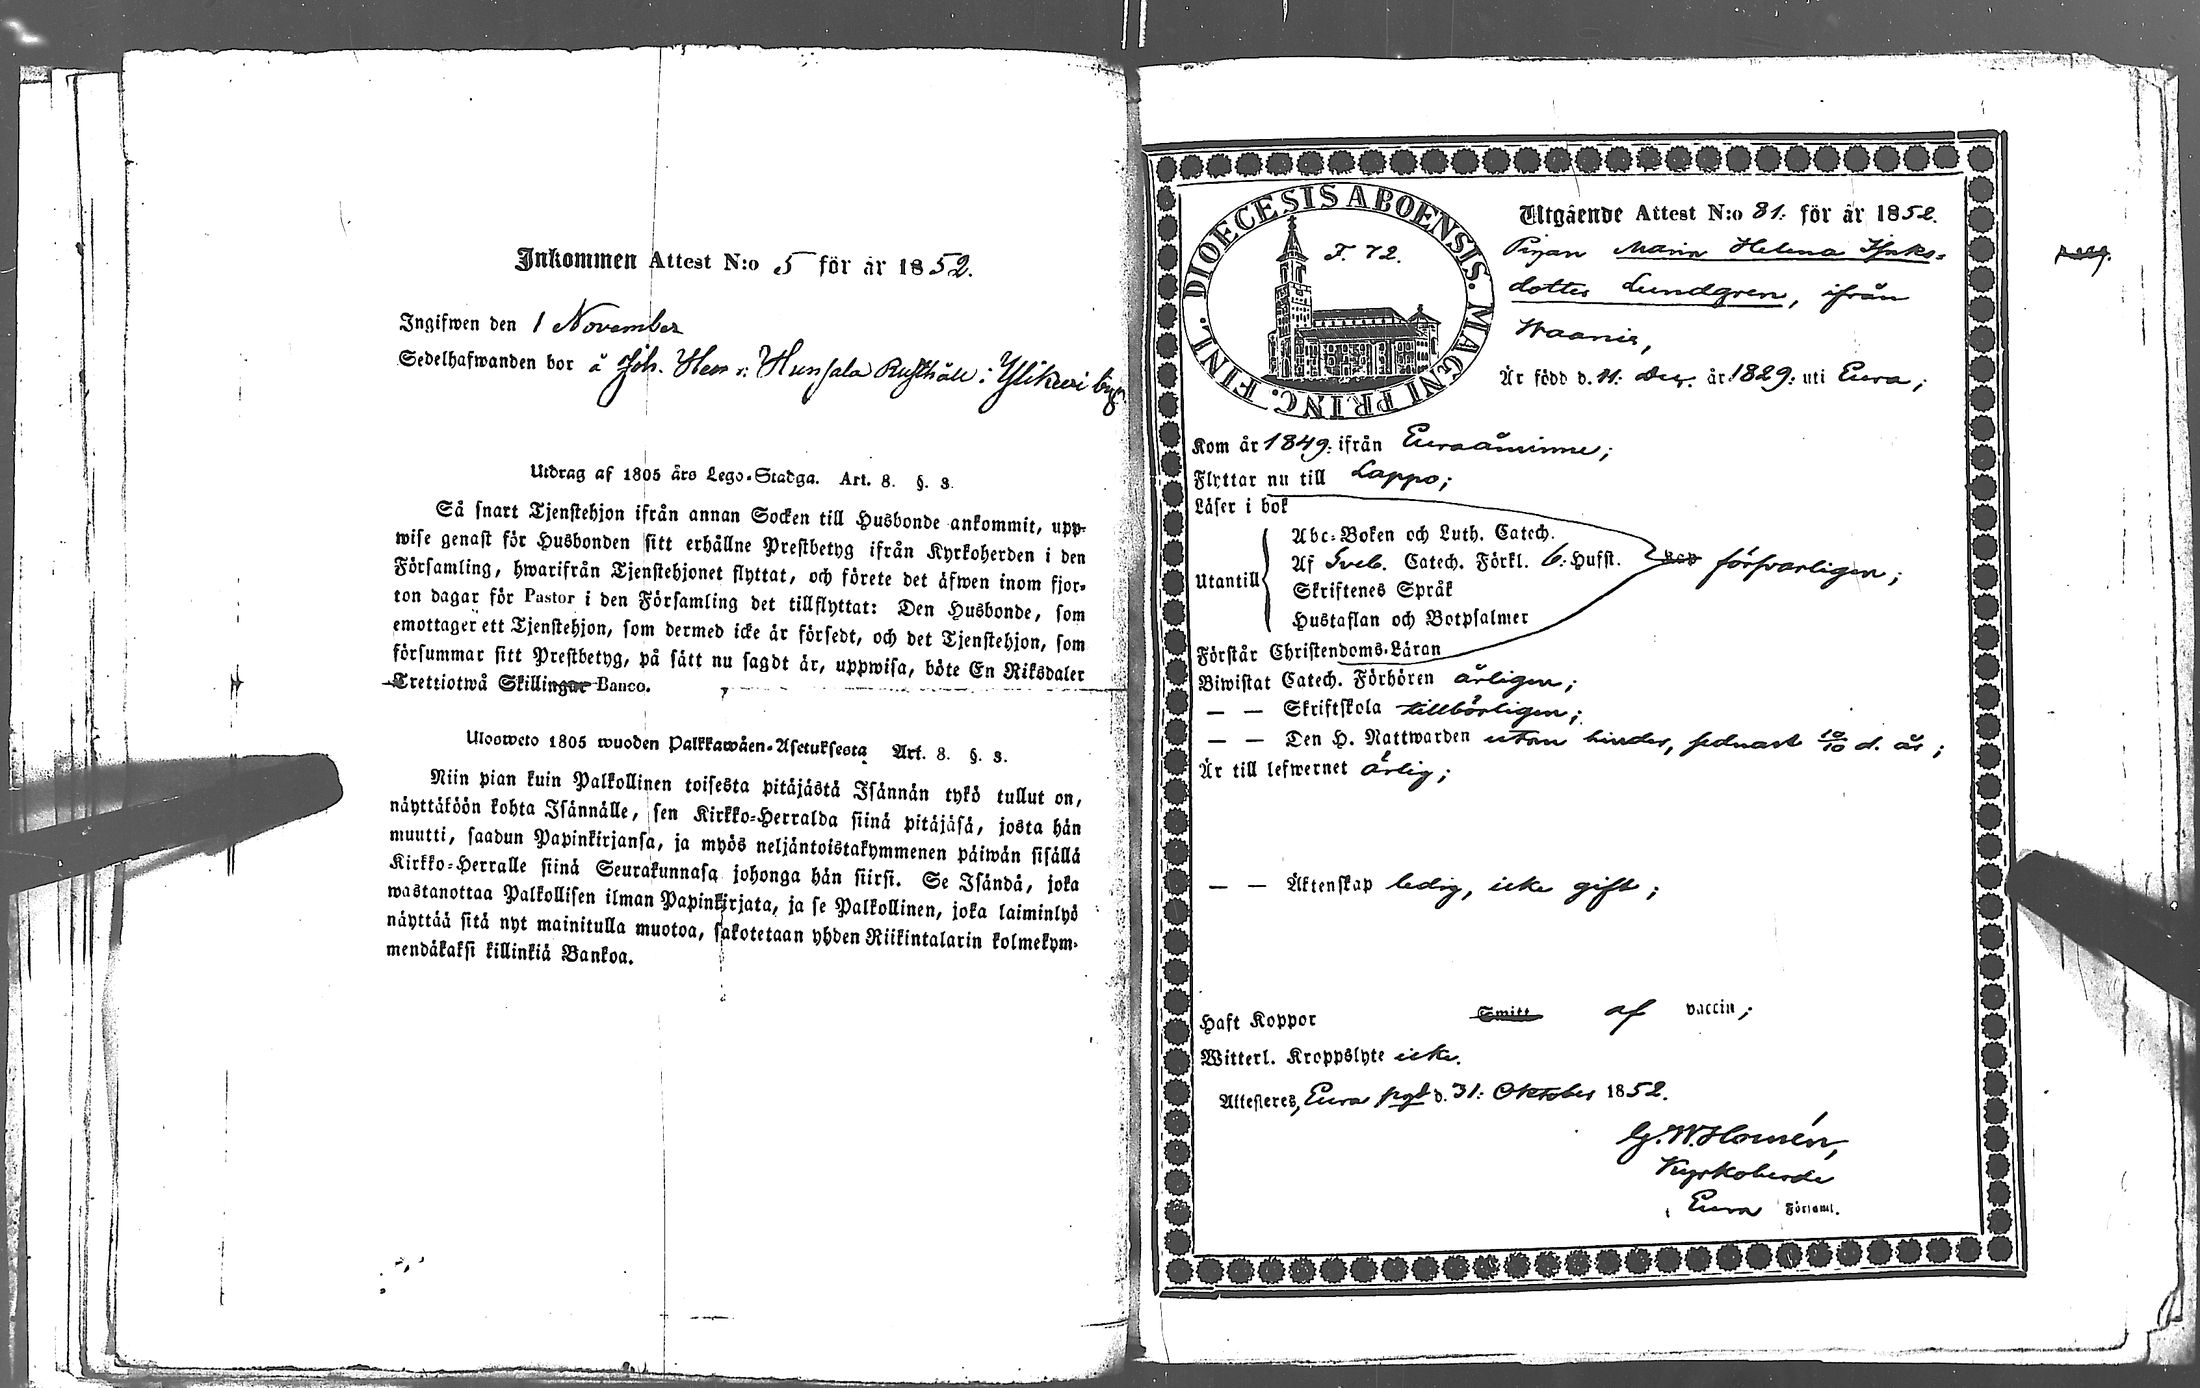 Inkommen Attest N:o 5 för år 1852.
Ingifwen den 1 November
Sedelhafwanden bor å Joh. Hunsala Rusthåll i Ylikeri
Utdrag af 1805 års Lego-Stadga. Art. 8. §. 8.
Så snart Tjenstehjon ifrån annan Socken till Husbonde ankommit, upp-
wise genast för Husbonden sitt erhållne Prestbetyg ifrån Kyrkoherden i den
Församling, hwarifrån Tjenstehjonet flyttat, och förete det äfwen inom fjor-
ton dagar för Pastor i den Församling det tillflyttat: Den Husbonde, som
emottager ett Tjenstehjon, som dermed icke är försedt, och det Tjenstehjon, som
försummar sitt Prestbetyg, på sätt nu sagdt är, uppwisa, böte En Riksdaler
Trettiotwå Skillingar Banco.
Ulosweto 1805 wuoden Palkkawäen-Asetuksesta Art. 8. §. 8.
Niin pian kuin Palkollinen toisesta pitäjästä Isännän tykö tullut on,
näyttäköön kohta Isännälle, sen Kirkko-Herralda siinä pitäjäsä, josta hän
muutti, saadun Papinkirjansa, ja myös neljäntoistakymmenen päiwän sisällä
Kirkko-Herralle siinä Seurakunnasa johonga hän siirsi. Se Isändä, joka
wastanottaa Palkollisen ilman Papinkirjata, ja se Palkollinen, joka laiminlyö
näyttää sitä nyt mainitulla muotoa, sakotetaan yhden Riikintalarin kolmekym-
mendäkaksi killinkiä Bankoa.
DIOECESIS ABOENSIS. MAGNI PRINC. FINL.
F. 72.
Utgående Attest N:o 81. för år 1852.
Pigan Maria Helena Isaks-
dotter Lundgren, ifrån
Är född d. 11: Dec. år 1829: uti Eura;
Kom år 1849: ifrån Euraåminne;
Flyttar nu till Lappo;
Läser i bok
Abc-Boken och Luth. Catech.
Utantill Af Sveb. Catech. Förkl. 6: Hufst. försvarligen;
Skriftenes Språk
Hustaflan och Botpsalmer
Förstår Christendoms-Läran
Biwistat Catech. Förhören årligen;
— — Skriftskola tillbörligen;
— — Den H. Nattwarden utan hinder, sednast 10/10 d. år;
Är till lefwernet ärlig;
— — Äktenskap ledig, icke gift;
Haft Koppor Smitt af vaccin;
Witterl. Kroppslyte icke.
Attesteres, Eura pgd d. 31: Oktober 1852.
G. W. Homén,
Kyrkoherde
i Eura Förjaml.